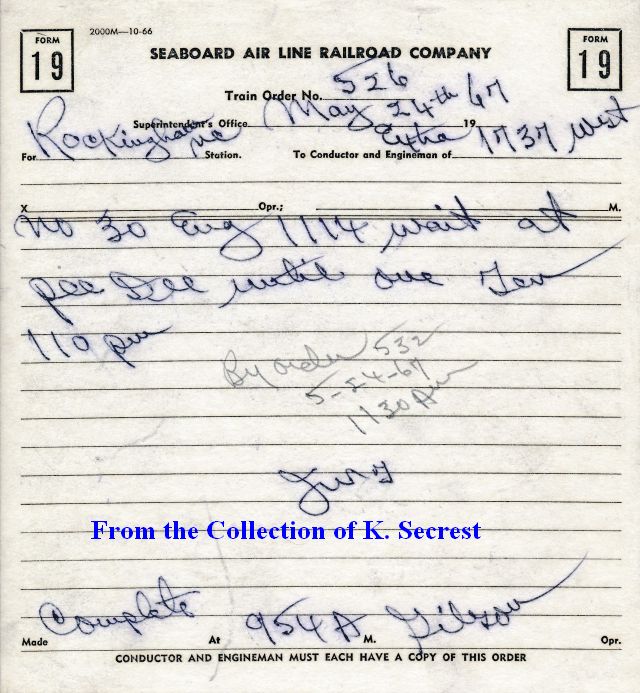 FORM 19
2000M—10-66
FORM 19
SEABOARD AIR LINE RAILROAD COMPANY
Train Order No. 526
Superintendent's Office May 24th 19 67
For Rockingham NC Station. To Conductor and Engineman of Extra 1737 West
X Opr.; M.
No 30 Eng 1114 wait at
Pee Dee until one Ten
110 pm
By order 532
5-24-67
1130 Am
From the Collection of K. Secrest
Made Complete At 954 A M. Gibson Opr.
CONDUCTOR AND ENGINEMAN MUST EACH HAVE A COPY OF THIS ORDER